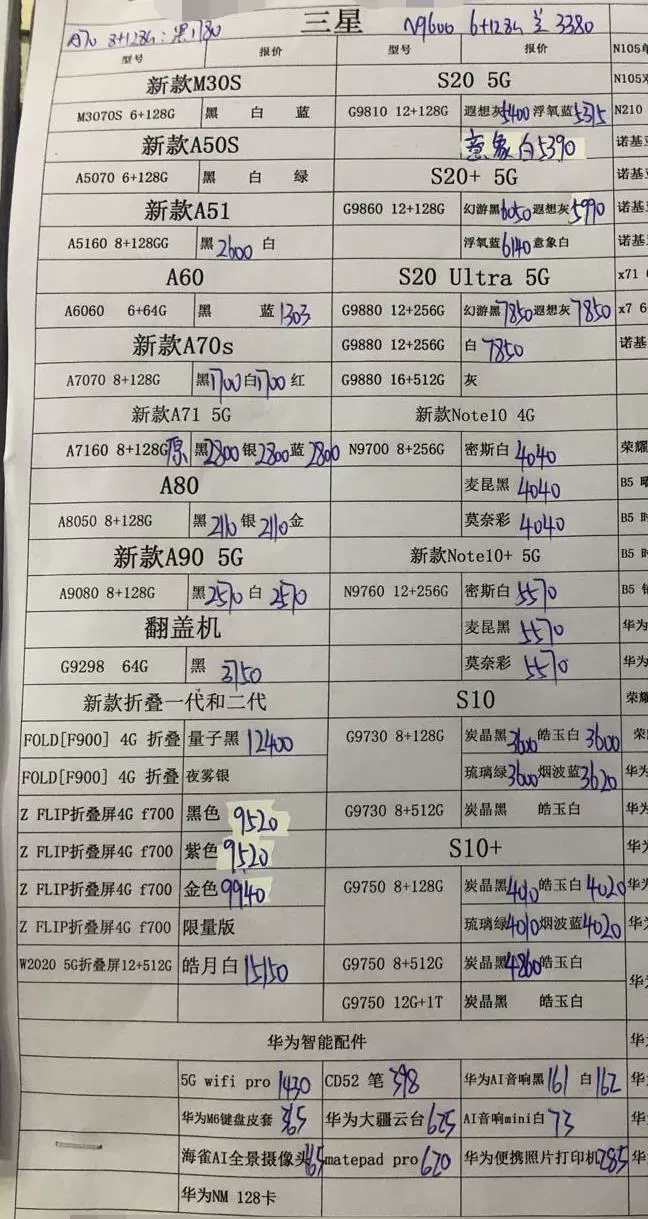 三星
A70 8+128G:黑1780
N9600 6+128G 兰 3380
型号 报价 型号 报价 N105
新款M30S S20 5G N105
M3070S 6+128G 黑 白 蓝 G9810 12+128G 遐想灰5400 浮氧蓝5375 N210
新款A50S 意象白5390 诺基
A5070 6+128G 黑 白 绿 S20+ 5G 诺基
新款A51 G9860 12+128G 幻游黑6050 遐想灰5990 诺基
A5160 8+128GG 黑2600 白 浮氧蓝6140 意象白 诺基
A60 S20 Ultra 5G x71
A6060 6+64G 黑 蓝1303 G9880 12+256G 幻游黑7850 遐想灰7850 x7 6
新款A70s G9880 12+256G 白7850 诺基
A7070 8+128G 黑1700 白1700 红 G9880 16+512G 灰
新款A71 5G 新款Note10 4G
A7160 8+128G原 黑2800 银2800 蓝2800 N9700 8+256G 密斯白4040 荣耀
A80 麦昆黑4040 B5
A8050 8+128G 黑2110 银2110 金 莫奈彩4040 B5
新款A90 5G 新款Note10+ 5G B5
A9080 8+128G 黑2570 白2570 N9760 12+256G 密斯白5570 B5
翻盖机 麦昆黑5570 华为
G9298 64G 黑3750 莫奈彩5570 华为
新款折叠一代和二代 S10 荣耀
FOLD[F900] 4G 折叠 量子黑12400 G9730 8+128G 炭晶黑3600 皓玉白3600
FOLD[F900] 4G 折叠 夜雾银 琉璃绿3600 烟波蓝3620 华为
Z FLIP折叠屏4G f700 黑色9520 G9730 8+512G 炭晶黑 皓玉白 华
Z FLIP折叠屏4G f700 紫色9520 S10+ 华
Z FLIP折叠屏4G f700 金色9940 G9750 8+128G 炭晶黑4010 皓玉白4020 华
Z FLIP折叠屏4G f700 限量版 琉璃绿4010 烟波蓝4020 华
W2020 5G折叠屏12+512G 皓月白15150 G9750 8+512G 炭晶黑4860 皓玉白
G9750 12G+1T 炭晶黑 皓玉白 华
华为智能配件 华
5G wifi pro 1430 CD52 笔 398 华为AI音响黑161 白162 华
华为M6键盘皮套 365 华为大疆云台625 AI音响mini白73 华
海雀AI全景摄像头165 matepad pro 620 华为便携照片打印机285 华
华为NM 128卡 华